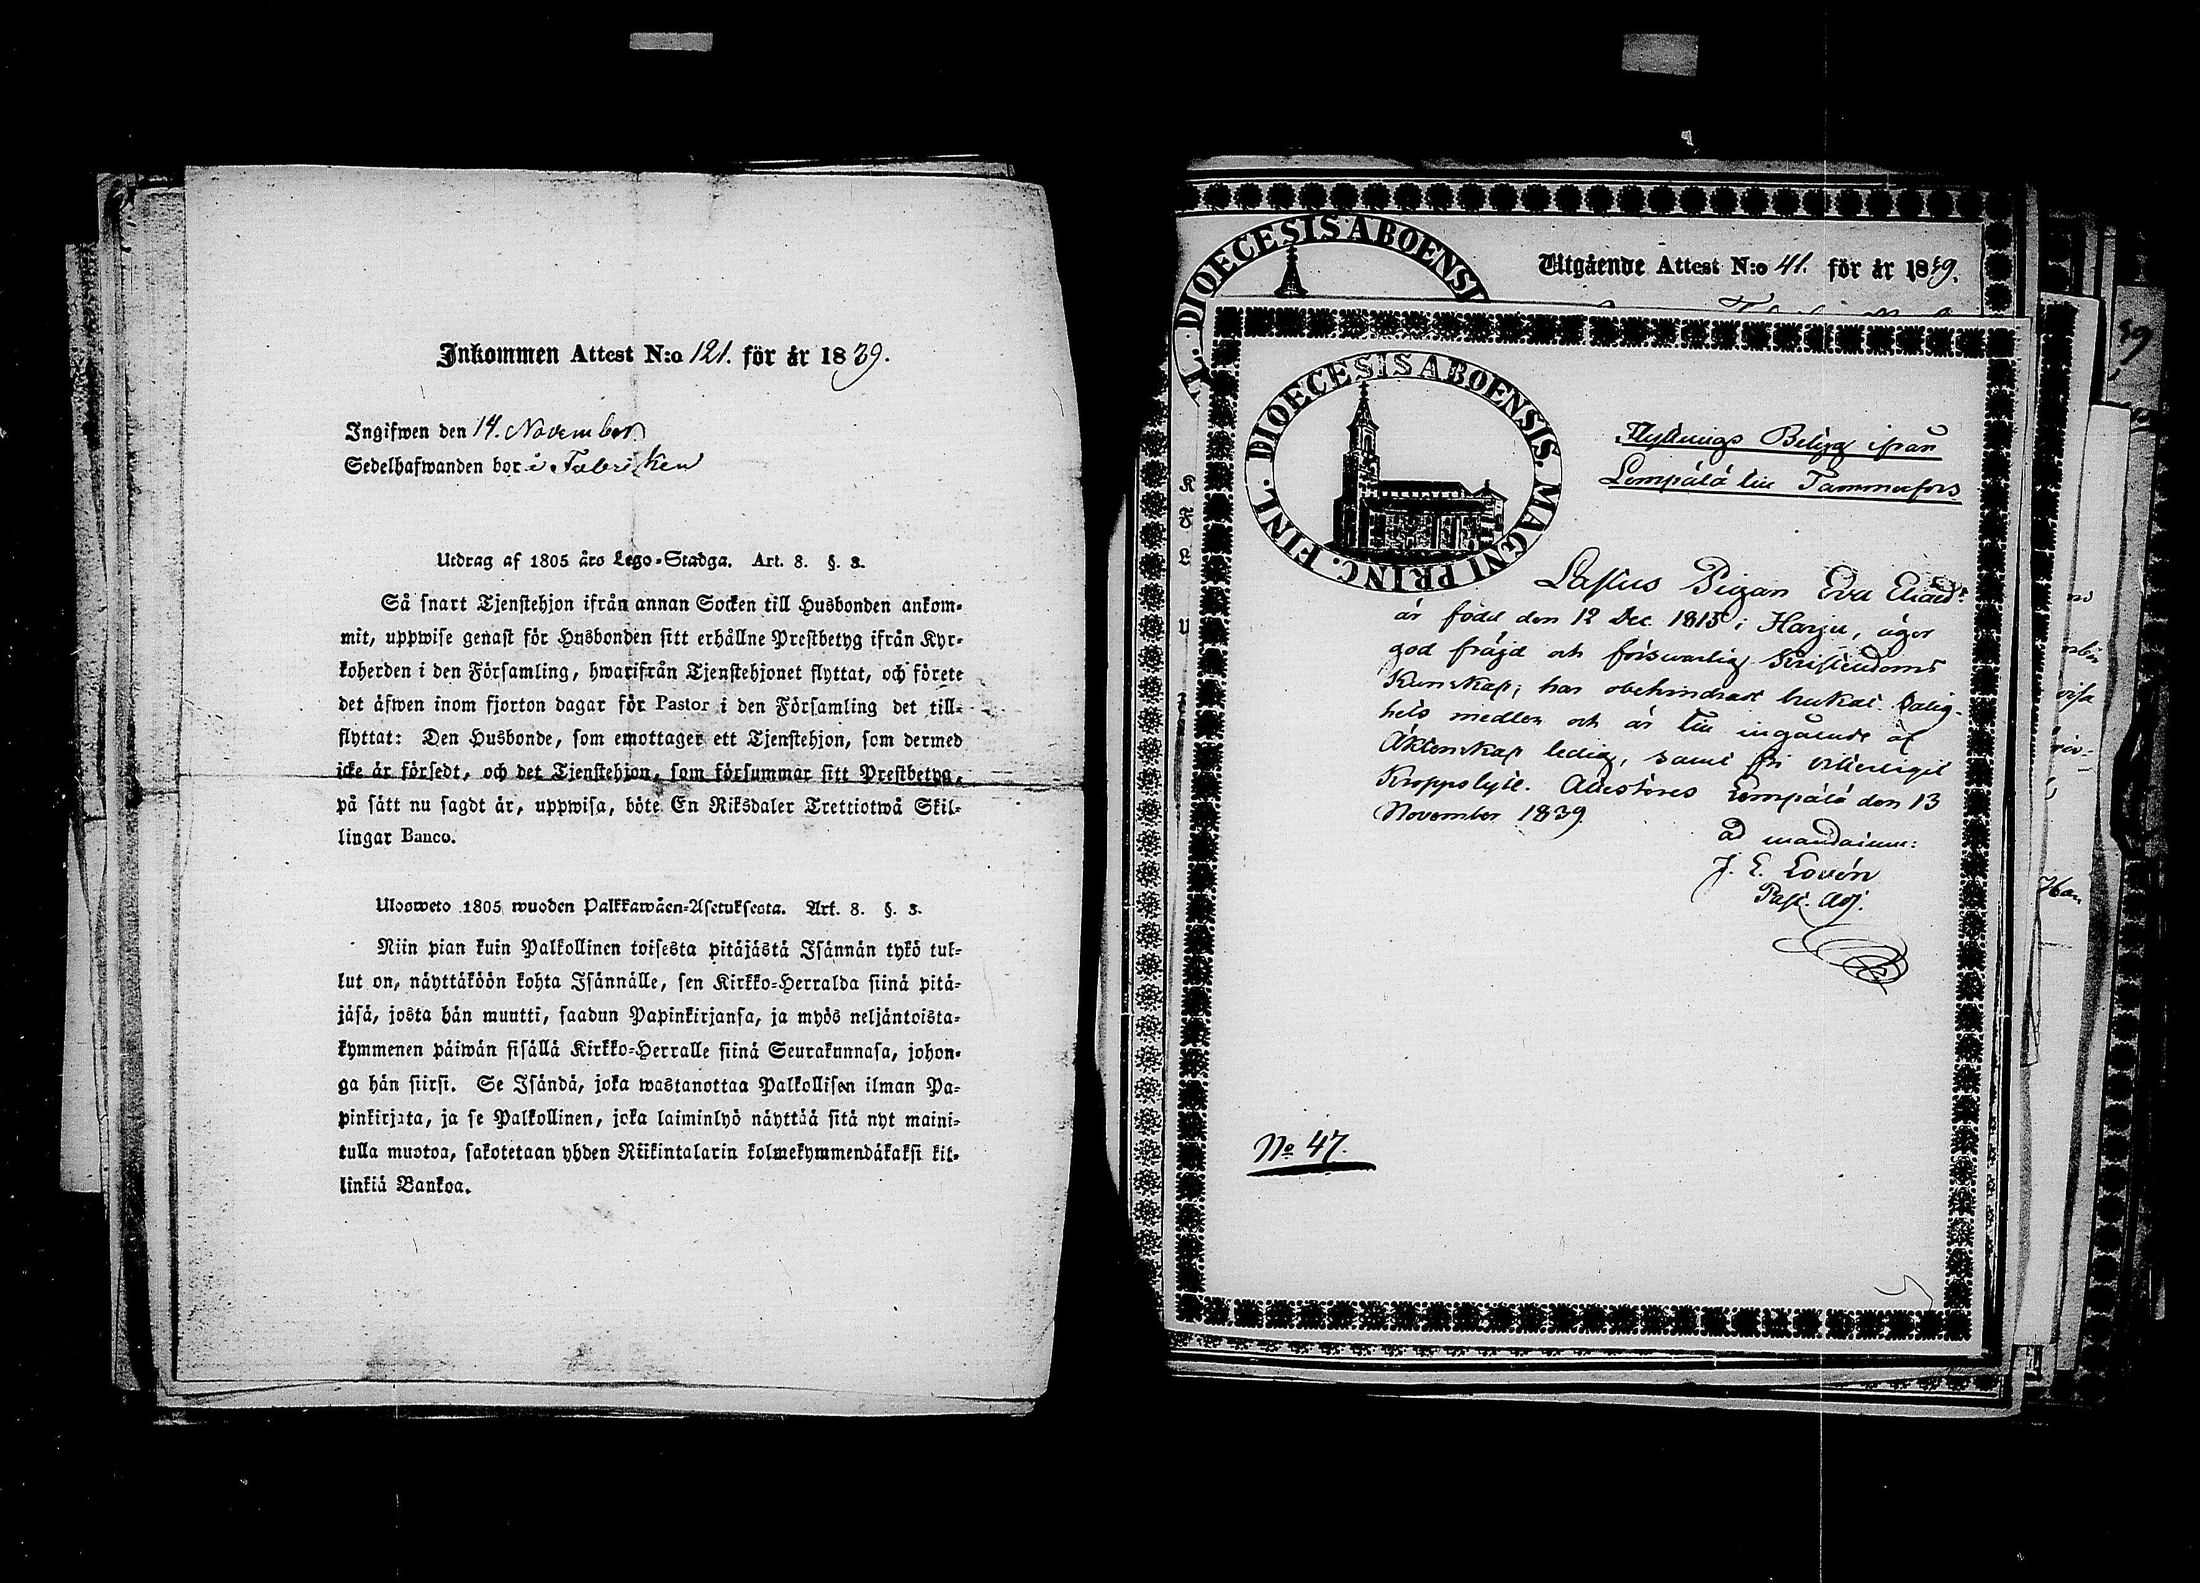 Inkommen Attest N:o 121. för år 1839.
Ingifwen den 14. November
Sedelhafwanden bor i Fabriken
Utdrag af 1805 års Lego-Stadga. Art. 8. §. 3.
Så snart Tjenstehjon ifrån annan Socken till Husbonden ankom-
mit, uppwise genast för Husbonden sitt erhållne Prestbetyg ifrån Kyr-
koherden i den Församling, hwarifrån Tjenstehjonet flyttat, och förete
det äfwen inom fjorton dagar för Pastor i den Församling det till-
flyttat: Den Husbonde, som emottager ett Tjenstehjon, som dermed
icke är försedt, och det Tjenstehjon, som försummar sitt Prestbetyg,
på sätt nu sagdt är, uppwisa, böte En Riksdaler Trettiotwå Skil-
lingar Banco.
Ulosweto 1805 wuoden Palkkawäen-Asetuksesta. Art. 8. §. 3.
Niin pian kuin Palkollinen toisesta pitäjästä Isännän tykö tul-
lut on, näyttäköön kohta Isännälle, sen Kirkko-Herralda siinä pitä-
jäsä, josta hän muutti, saadun Papinkirjansa, ja myös neljäntoista-
kymmenen päiwän sisällä Kirkko-Herralle siinä Seurakunnasa, johon-
ga hän siirsi. Se Isändä, joka wastanottaa Palkollisen ilman Pa-
pinkirjata, ja se Palkollinen, joka laiminlyö näyttää sitä nyt maini-
tulla muotoa, sakotetaan yhden Riikintalarin kolmekymmendäkaksi kil-
linkiä Bankoa.
DIOECESIS ABOENSI
Utgående Attest N:o 41. för år 1839.
FINL. DIOECESIS ABOENSIS. MAGNI PRINC.
Flyttnings Betyg ifrån
Lempälä till Tammerfors
Pigan Eva
är född den 12 Dec 1815 i Harju, äger
god fräjd och förswarlig Kristendoms
Kunskap; har obehindradt brukat Salig-
hets medlen och är till ingående af
Äktenskap ledig, samt fri vitterligit
Kroppslyte. Attesteres Lempälä den 13
November 1839
ad mandatum:
J. E. Lovén
Past. Adj.
No 47.